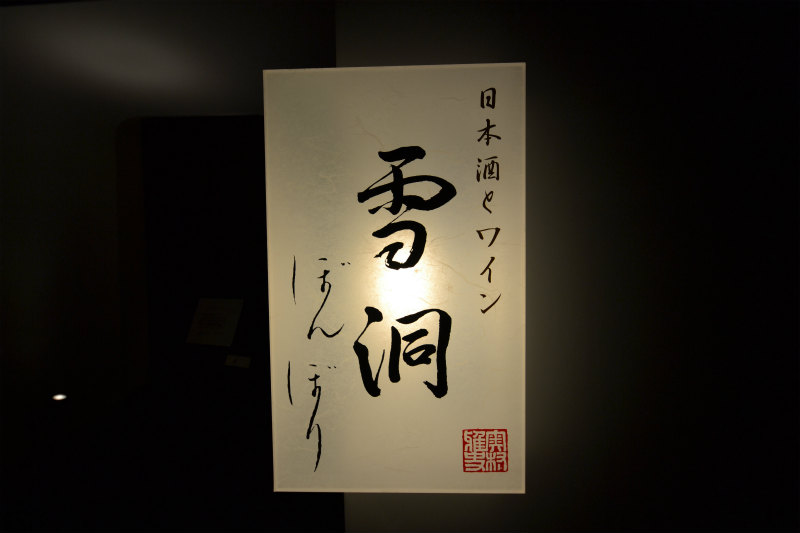 日本酒とワイン
雪洞
ぼんぼり